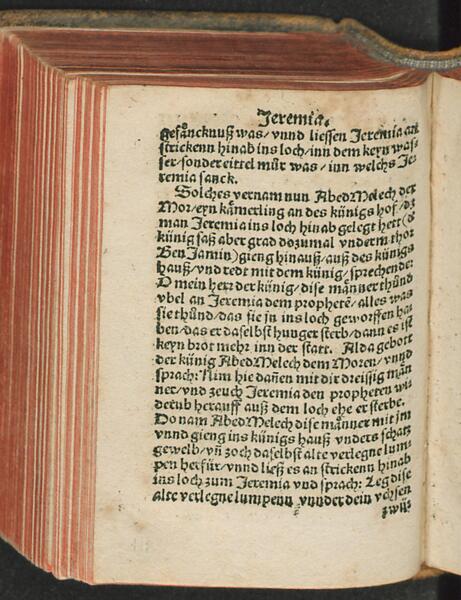 Jeremia.
gefåncknuß was/ vnnd liessen Jeremia
strickenn hinab ins loch/ inn dem keyn was⸗
ser/ sonder eittel můr was/ inn welchs Je⸗
remia sanck.
Solches vernam nun AbedMelech der
Mor/ eyn kåmerling an des künigs hof/ dz
man Jeremia ins loch hinab gelegt hett (d̕
künig saß aber grad dozumal vnderm thor
BenJamin) gieng hinauß/ auß des künigs
hauß/ vnd redt mit dem künig/ sprechende:
O mein herr der künig/ dise månner thůnd
vbel an Jeremia dem prophetē/ alles was
sie thůnd/ das sie jn ins loch geworffen ha⸗
ben/ das er daselbst hunger sterb/ dann es ist
keyn brot mehr inn der statt. Alda gebott
der künig AbedMelech dem Moren/ vnnd
sprach: Nim hie dañen mit dir dreissig mån
ner/ vnd zeuch Jeremia den propheten wi⸗
derub herauff auß dem loch ehe er sterbe.
Do nam AbedMelech dise månner mit jm
vnnd gieng ins künigs hauß vnders schatz
gewelb/ vñ zoch daselbst alte verlegne lum⸗
pen herfür/ vnnd ließ es an strickenn hinab
ins loch zum Jeremia vnd sprach: Leg dise
alte verlegne lumpenn vnnder dein vchsen
zwüs